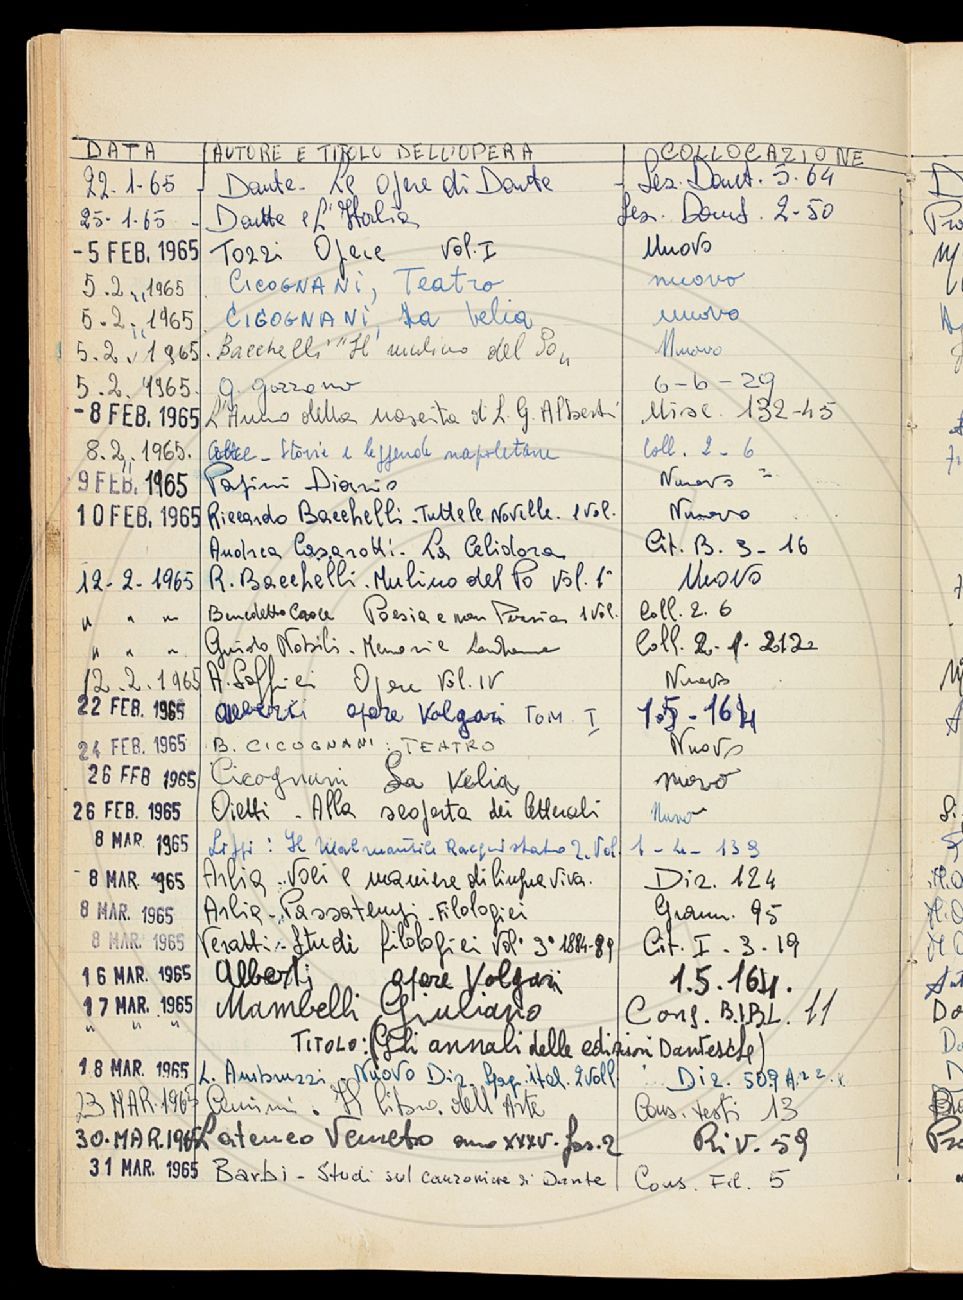 DATA AUTORE E TITOLO DELL'OPERA COLLOCAZIONE
22.1.65 - Dante - Le Opere di Dante - Sez. Dant. 5.64
25.1.65 - Dante e l'Italia Sez. Dant. 2-50
-5 FEB. 1965 Tozzi Opere vol. I Nuovo
5.2. 1965 CICOGNANI, Teatro nuovo
5.2. 1965 CICOGNANI, La Velia nuovo
5.2. 1965. Bacchelli "Il mulino del Po" Nuovo
5.2. 1965. G. Gozzano 6-6-29
-8 FEB. 1965 L'Anno della nascita di L. G. Alberti Misc. 132-45
8.2. 1965. Croce - Storie e leggende napoletane Coll. 2-6
9 FEB. 1965 Papini Diario Nuovo =
10 FEB. 1965 Riccardo Bacchelli - Tutte le Novelle. 1 vol. Nuovo
Andrea Casarotti - La Celidora Cit. B. 3-16
12-2-1965 R. Bacchelli. Mulino del Po vol. 1° Nuovo
" " " Benedetto Croce Poesia e non Poesia 1 vol. Coll. 2.6
" " " Guido Nobili - Memorie Lontane Coll. 2.1.212
12.2.1965 A. Soffici Opere vol. IV Nuovo
22 FEB. 1965 Alberti opere volgari TOM. I 1.5-164
24 FEB. 1965 B. CICOGNANI: TEATRO Nuovo
26 FEB 1965 Cicognani La Velia nuovo
26 FEB. 1965 Ojetti - Alla scoperta dei letterati Nuovo
8 MAR. 1965 Lippi: Il Malmantile Racquistato 2. Vol. 1-4-139
-8 MAR. 1965 Arlia - Voci e maniere di lingua viva. Diz. 124
8 MAR. 1965 Arlia - Passatempi Filologici Gram. 95
8 MAR. 1965 Veratti - Studi filologici vol. 3° 1884-89 Cit. I-3-19
16 MAR. 1965 Alberti opere Volgari 1.5.164.
17 MAR. 1965 Mambelli Giuliano Cons. BIBL. 11
" " " TITOLO: (Gli annali delle edizioni Dantesche)
18 MAR. 1965 L. Ambruzzi - Nuovo Diz. Spag. ital. 2 voll. Diz. 509 A.
23 MAR. 1965 Cennini - Il libro dell'Arte Cons. testi 13
30. MAR. 1965 L'ateneo Veneto anno XXXV. fas. 2 Riv. 59
31 MAR. 1965 Barbi - Studi sul canzoniere di Dante Cons. Fil. 5